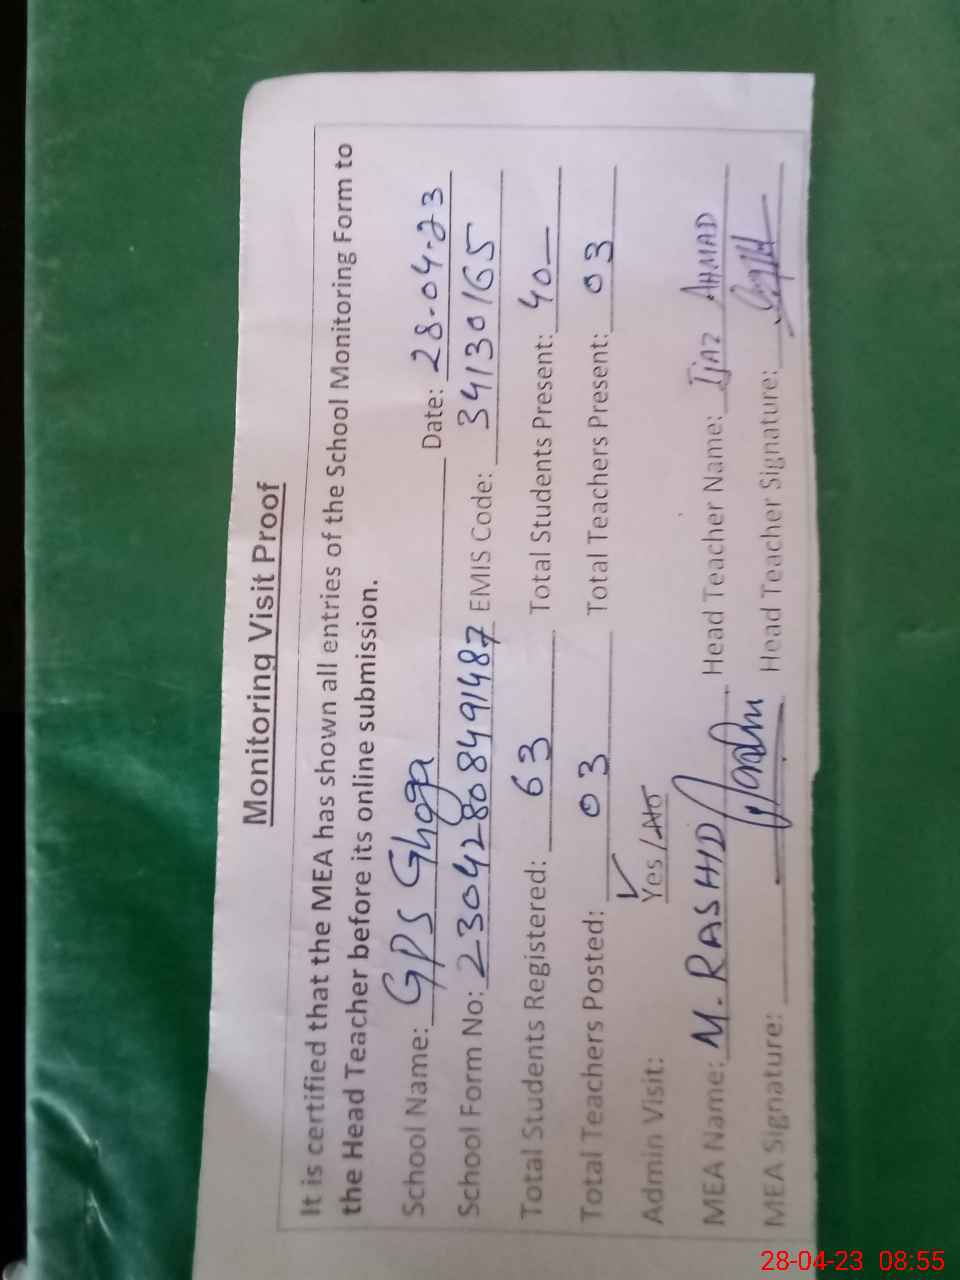 Monitoring Visit Proof
It is certified that the MEA has shown all entries of the School Monitoring Form to
the Head Teacher before its online submission.
School Name: GPS Ghoga Date: 28-04-23
School Form No: 230428084 91487 EMIS Code: 34130165
Total Students Registered: 63 Total Students Present: 40
Total Teachers Posted: 03 Total Teachers Present: 03
Admin Visit: Yes / No
MEA Name: M. RASHID Head Teacher Name: Ijaz AHMAD
MEA Signature: Head Teacher Signature:
28-04-23 08:55